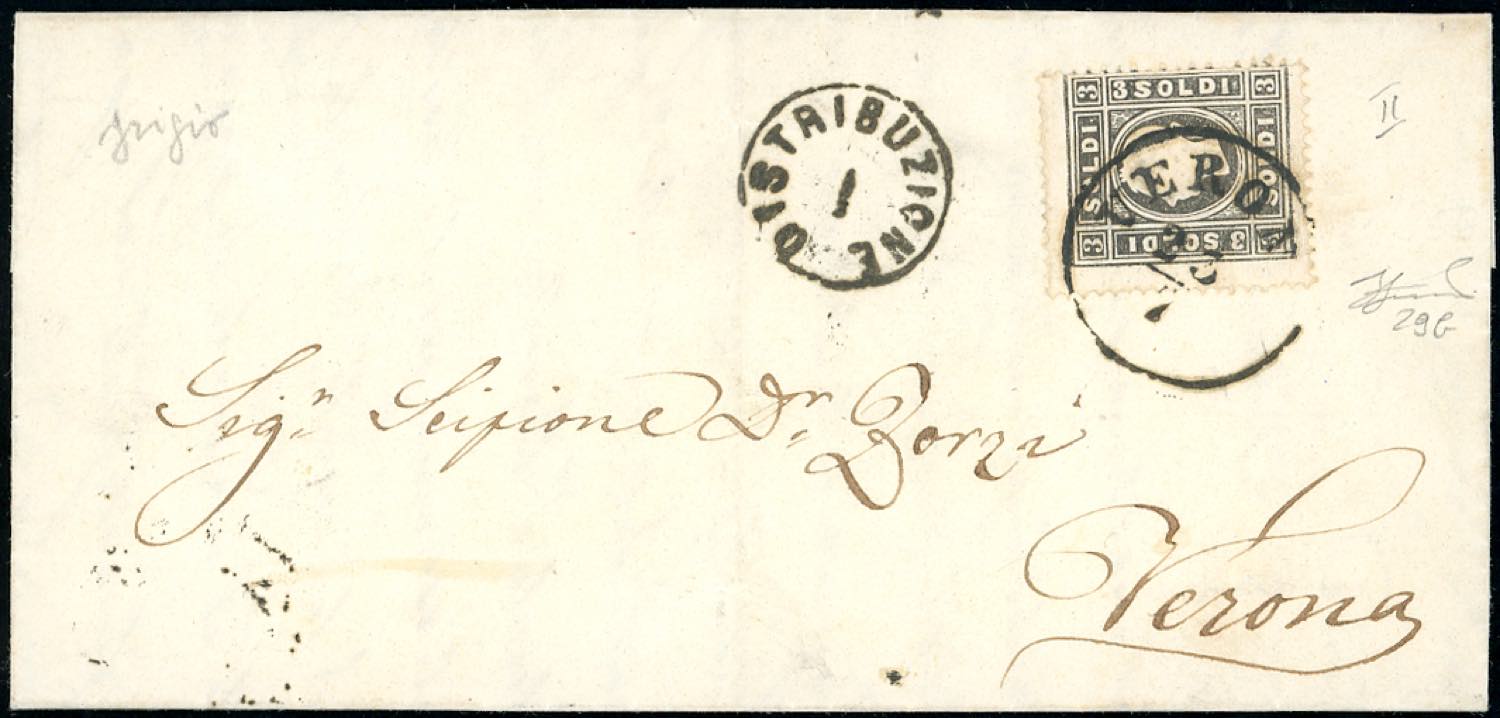 grigio
DISTRIBUZIONE
1
3 3 SOLDI 3
SOLDI
SOLDI
3
3 SOLDI
VERONA
II
29b
Sigʳ Scipione Dʳ Zorzi
Verona